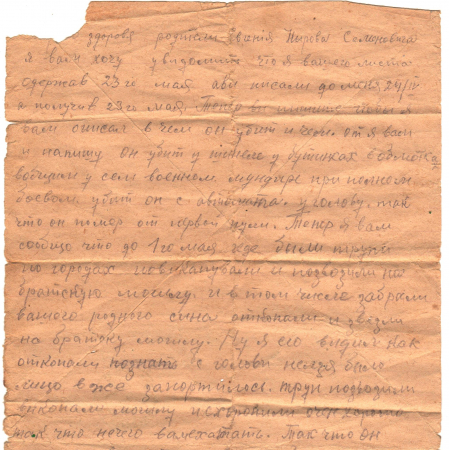 здоровя родители Кирова Семеновича
я вам хочу уведомить что я вашего письмо
одержав 23го мая. а ви писали до меня 24/IV
а получив 23го мая. Тепер ви пишите чтоб я
вам описал в чем он убит и чем. от я вам
и напишу он убит у шинеле у бутинках
у сем военном мундире при полном
боевом убит он с автомата у голову. так
что он помер от первой пули. Тепер я вам
сообщо что до 1го мая где были трупи
по городах повикапували и подвозили на
братскую могилу. и в том числе забрали
вашого родного сина откопали и звезли
на братску могилу. Ну я его видил как
откопали познать с голови нелзя было
лицо вже запортилось. трупи подвозили
викопали могилу и схоронили очн хорошо
так что нечего Так что он